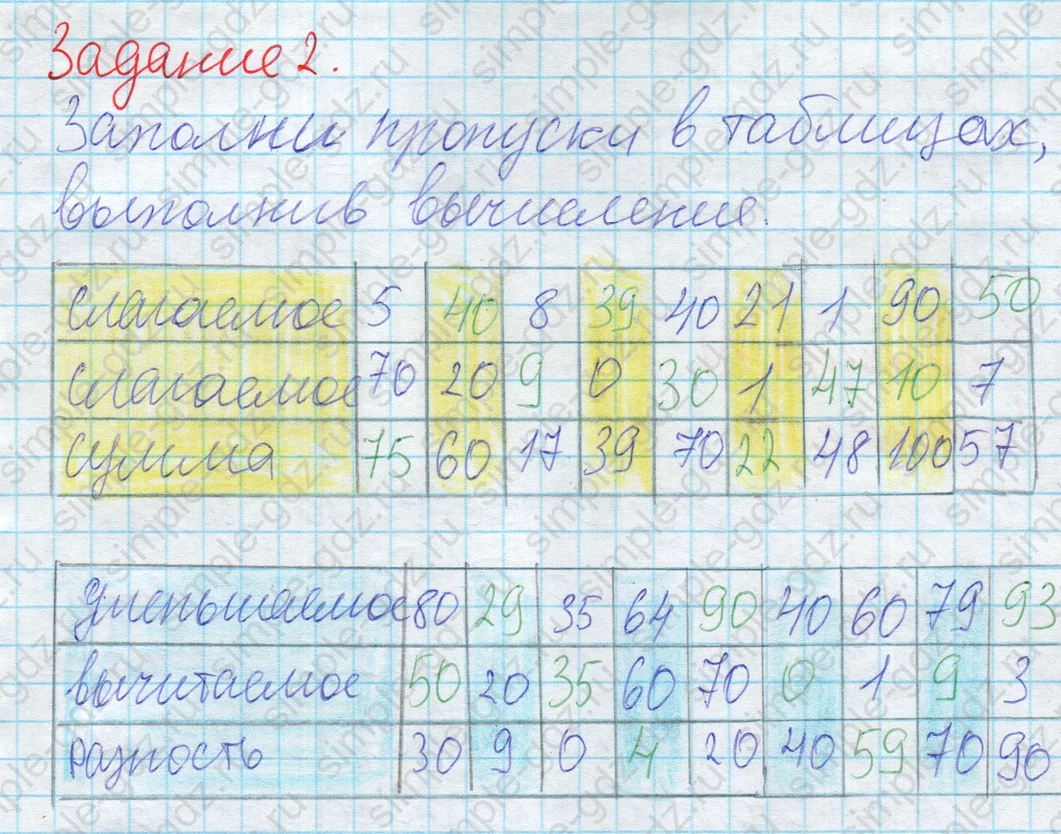 Задание 2.
Заполни пропуски в таблицах,
выполнив вычисления.
Слагаемое 5 40 8 39 40 21 1 90 50
Слагаемое 70 20 9 0 30 1 47 10 7
Сумма 75 60 17 39 70 22 48 100 57
Уменьшаемое 80 29 35 64 90 40 60 79 93
вычитаемое 50 20 35 60 70 0 1 9 3
разность 30 9 0 4 20 40 59 70 90
simple-gdz.ru